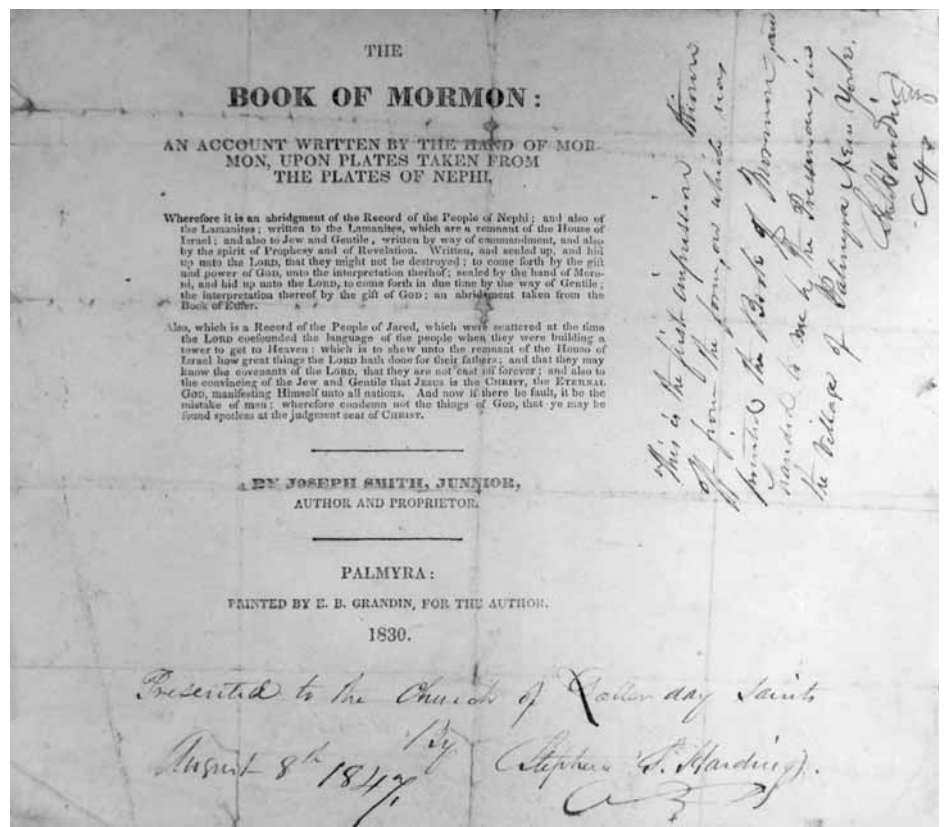 THE
BOOK OF MORMON:
AN ACCOUNT WRITTEN BY THE HAND OF MOR-
MON, UPON PLATES TAKEN FROM
THE PLATES OF NEPHI.
Wherefore it is an abridgment of the Record of the People of Nephi; and also of
the Lamanites; written to the Lamanites, which are a remnant of the House of
Israel; and also to Jew and Gentile; written by way of commandment, and also
by the spirit of Prophesy and of Revelation. Written, and sealed up, and hid
up unto the LORD, that they might not be destroyed; to come forth by the gift
and power of GOD, unto the interpretation thereof; sealed by the hand of Moro-
ni, and hid up unto the LORD, to come forth in due time by the way of Gentile;
the interpretation thereof by the gift of GOD; an abridgment taken from the
Book of Ether.
Also, which is a Record of the People of Jared, which were scattered at the time
the LORD confounded the language of the people when they were building a
tower to get to Heaven: which is to shew unto the remnant of the House of
Israel how great things the LORD hath done for their fathers; and that they may
know the covenants of the LORD, that they are not cast off forever; and also to
the convincing of the Jew and Gentile that JESUS is the CHRIST, the ETERNAL
GOD, manifesting Himself unto all nations. And now if there be fault, it be the
mistake of men; wherefore condemn not the things of GOD, that ye may be
found spotless at the judgment seat of CHRIST.
BY JOSEPH SMITH, JUNIOR,
AUTHOR AND PROPRIETOR.
PALMYRA:
PRINTED BY E. B. GRANDIN, FOR THE AUTHOR.
1830.
Presented to the Church of Latter day Saints
By
August 8th 1847. Stephen S. Harding.
This is the first impression thrown
off from the form, on which was
printed the Book of Mormon, and
handed to me by the Pressman, in
the Village of Palmyra New York.
S. S. Harding